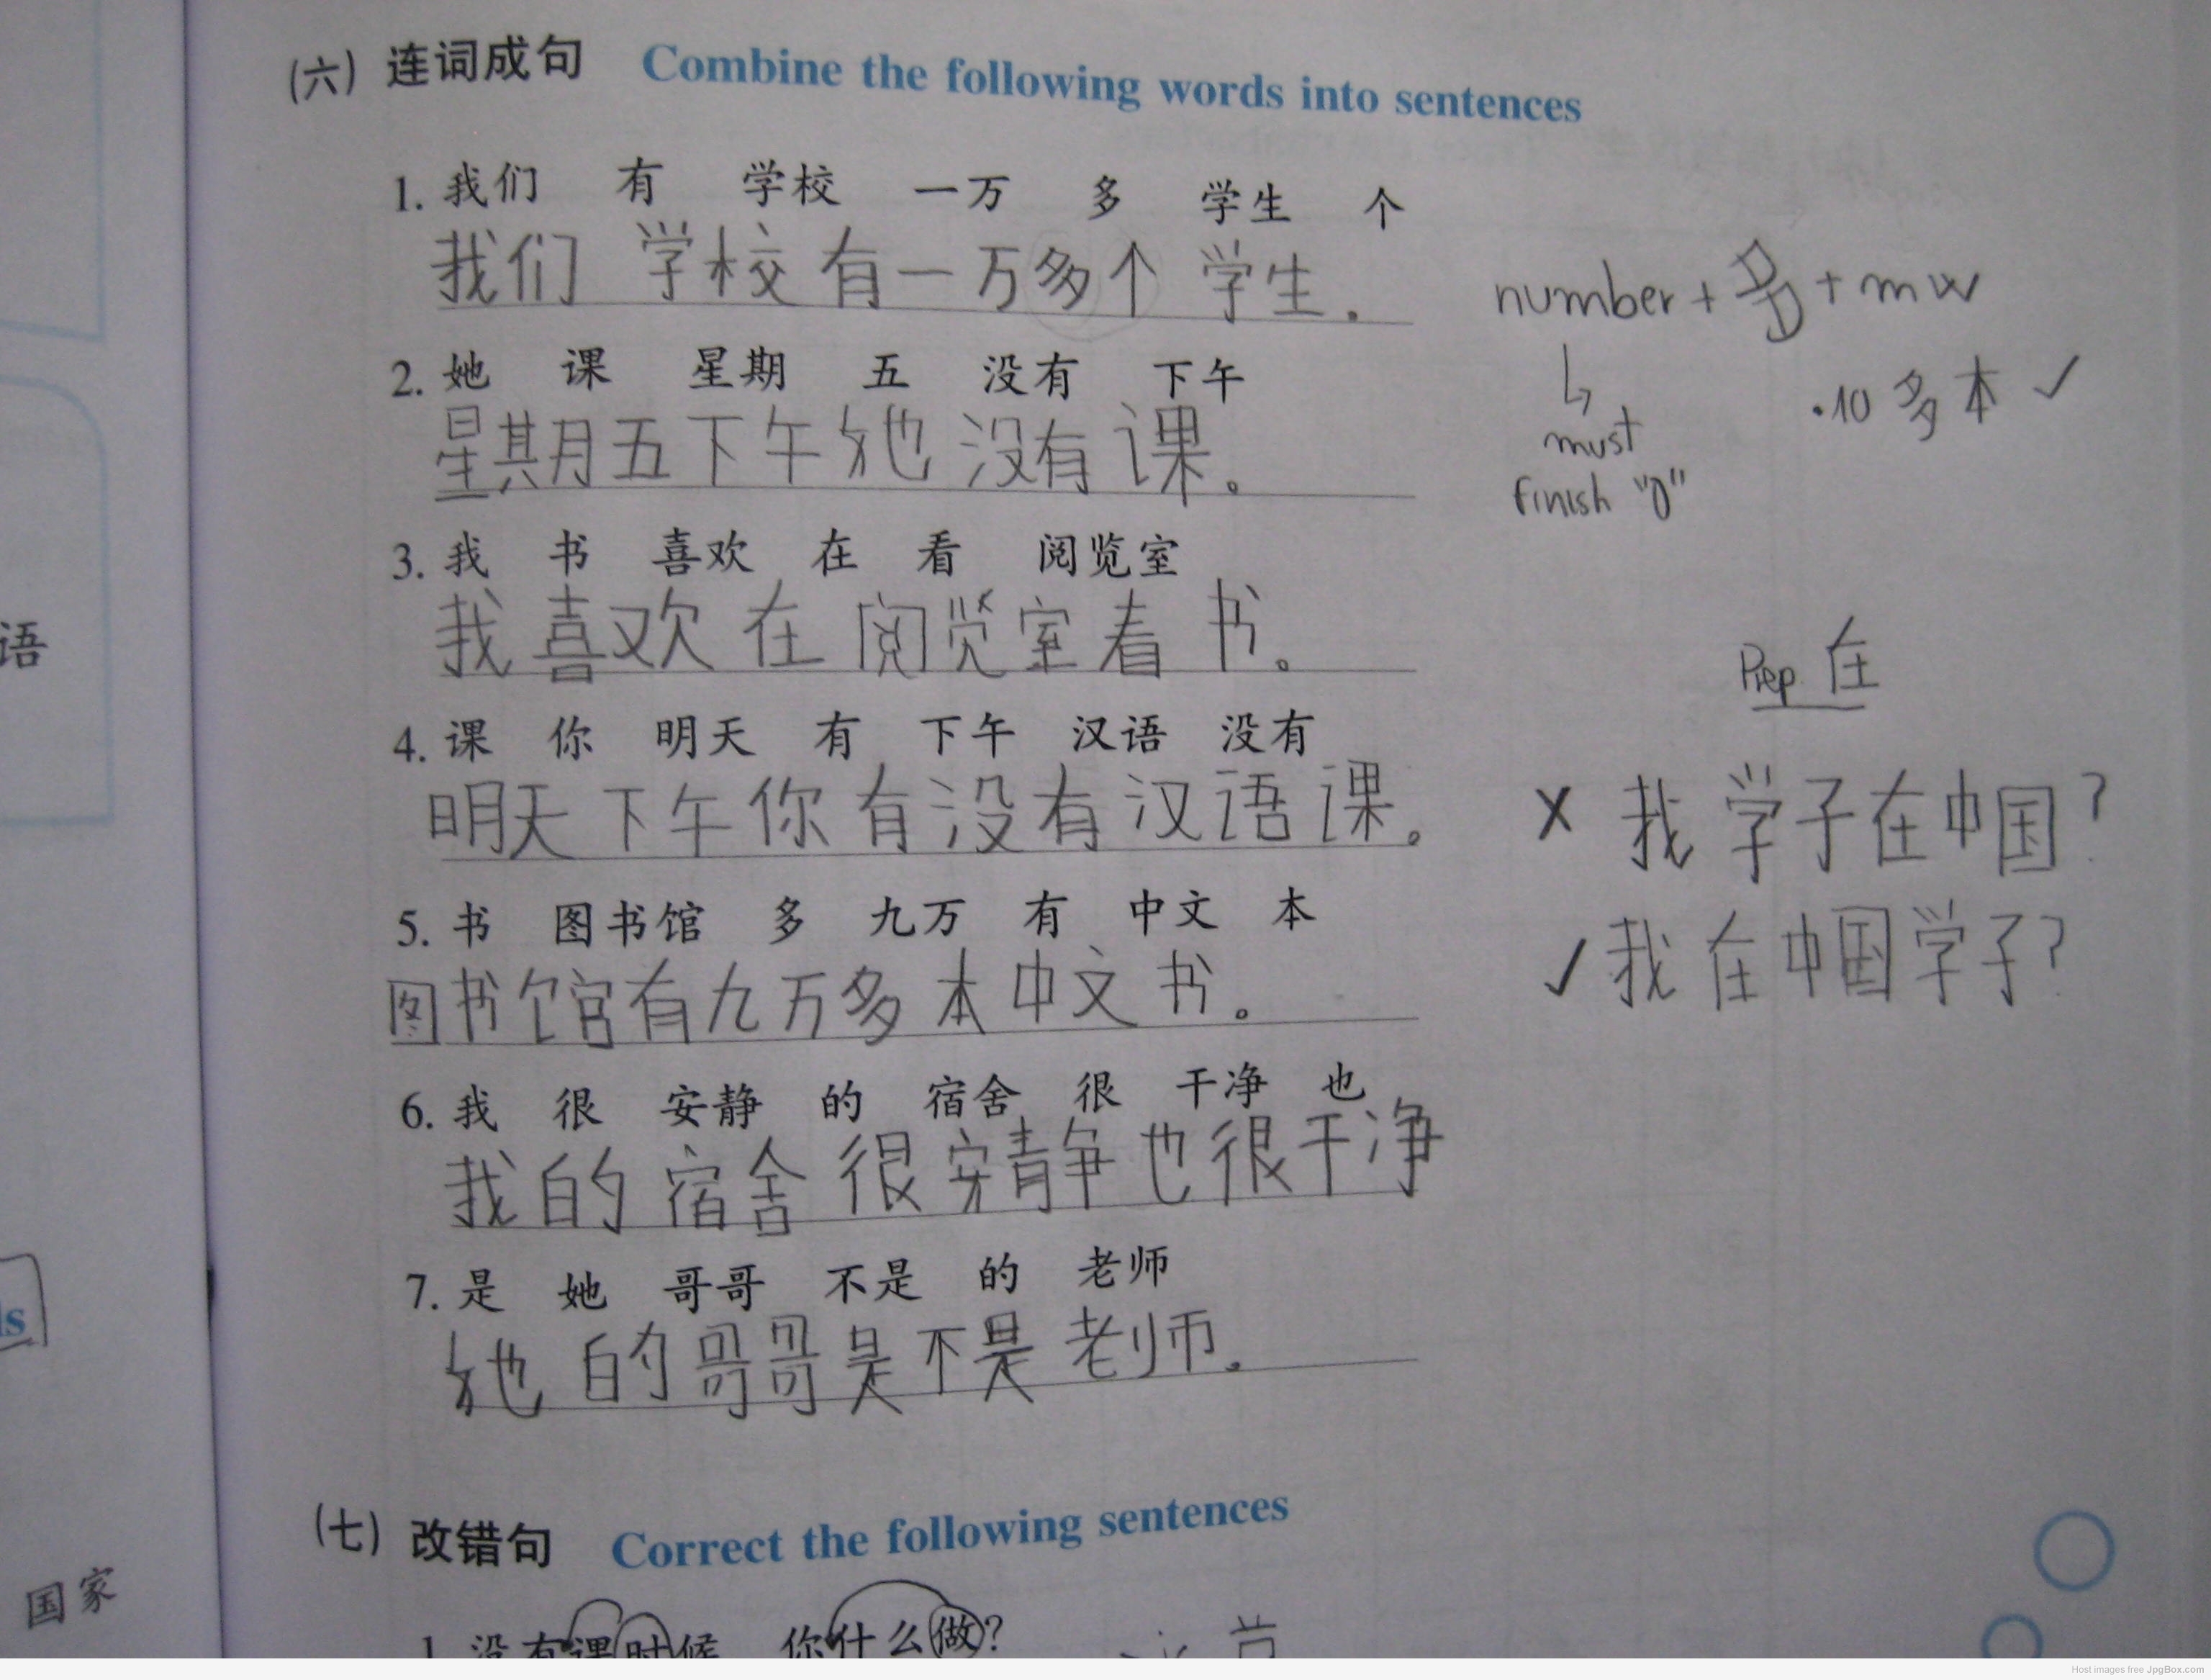 (六) 连词成句 Combine the following words into sentences
1. 我们 有 学校 一万 多 学生 个
我们 学校有一万多个 学生.
number + 多 + mw
↳ must finish "0"
·10 多本 ✓
2. 她 课 星期 五 没有 下午
星期五下午她没有课。
3. 我 书 喜欢 在 看 阅览室
我喜欢在阅览室看书。
Prep. 在
4. 课 你 明天 有 下午 汉语 没有
明天下午你有没有汉语课。
X 我学子在中国?
5. 书 图书馆 多 九万 有 中文 本
图书馆有九万多本中文书。
✓ 我在中国学子?
6. 我 很 安静 的 宿舍 很 干净 也
我的宿舍很安静也很干净
7. 是 她 哥哥 不是 的 老师
她的哥哥是不是老师.
(七) 改错句 Correct the following sentences
1. 没有课时候 你什么做?
语
ls
国家
Host images free JpgBox.com